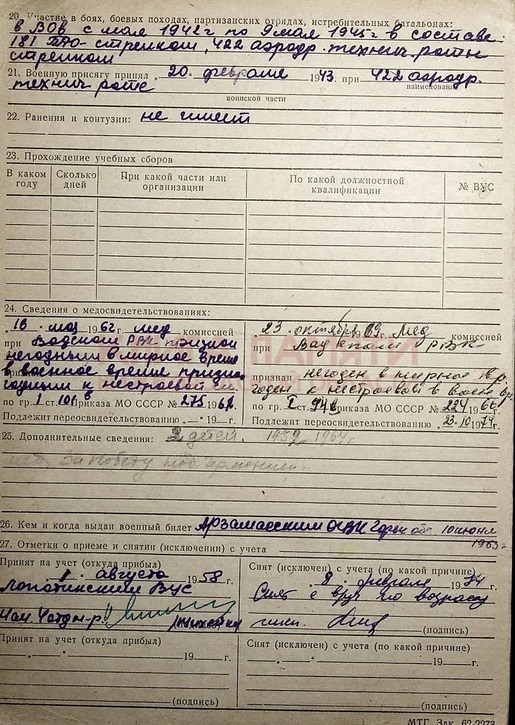 20. Участие в боях, боевых походах, партизанских отрядах, истребительных батальонах:
в ВОВ с мая 1942 г по 9 мая 1945 г в составе
181 стрелком, 422 аэродр. технич роты
стрелком
21. Военную присягу принял „20" февраля 1943 при 422 аэродр.
наименование
технич роте
воинской части
22. Ранения и контузии: не имеет
23. Прохождение учебных сборов
В каком году
Сколько дней
При какой части или организации
По какой должностной квалификации
№ ВУС
24. Сведения о медосвидетельствованиях:
„16" мая 1962 г. мед комиссией
при Вадском РВК признан
негодным в мирное время
в военное время признан
годным к нестроевой сл.
по гр. I ст. 101 в Приказа МО СССР № 275 196
Подлежит переосвидетельствованию „—" — 19—г.
„23" октября 1969 г. Мед комиссией
при Вадском РВК
признан негоден в мирное вр
годен к нестроевой в воен. вр.
по гр. I ст. 94 в Приказа МО СССР № 224 1966
Подлежит переосвидетельствованию 23.10 1974 г.
25. Дополнительные сведения: 2 детей, 1959, 1964 г.
За победу над Германией
26. Кем и когда выдан военный билет Арзамасским ОГВК Горьк обл 10 июня
1963
27. Отметки о приеме и снятии (исключении) с учета
Принят на учет (откуда прибыл)
„1" августа 1958 г.
Лопатинский ВУС
Снят (исключен) с учета (по какой причине)
„9" февраля 1974
Снят с ВУ по возрасту
(подпись)
Принят на учет (откуда прибыл)
19—г.
(подпись)
Снят (исключен) с учета (по какой причине)
19—г.
(подпись)
МТГ. Зак. 62-2273